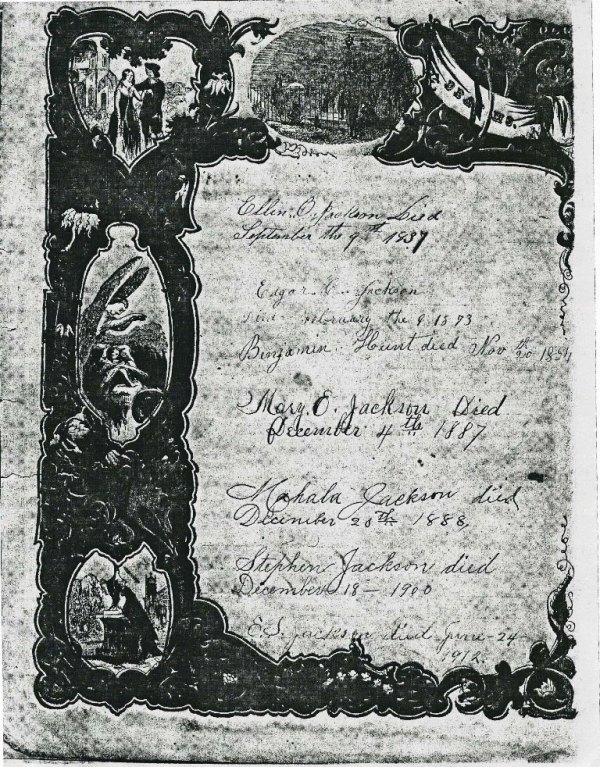 DEATHS.
Ellin. C. Jackson Died
September the 9th 1837
Edgar. C. Jackson
died February the 9. 1873
Benjamin. Hunt died Nov th 20
Mary E. Jackson Died
December 4th 1887
Mahala Jackson died
December 20th 1888,
Stephen Jackson died
December 18 — 1900
E. S. Jackson died June - 24 -
1912.